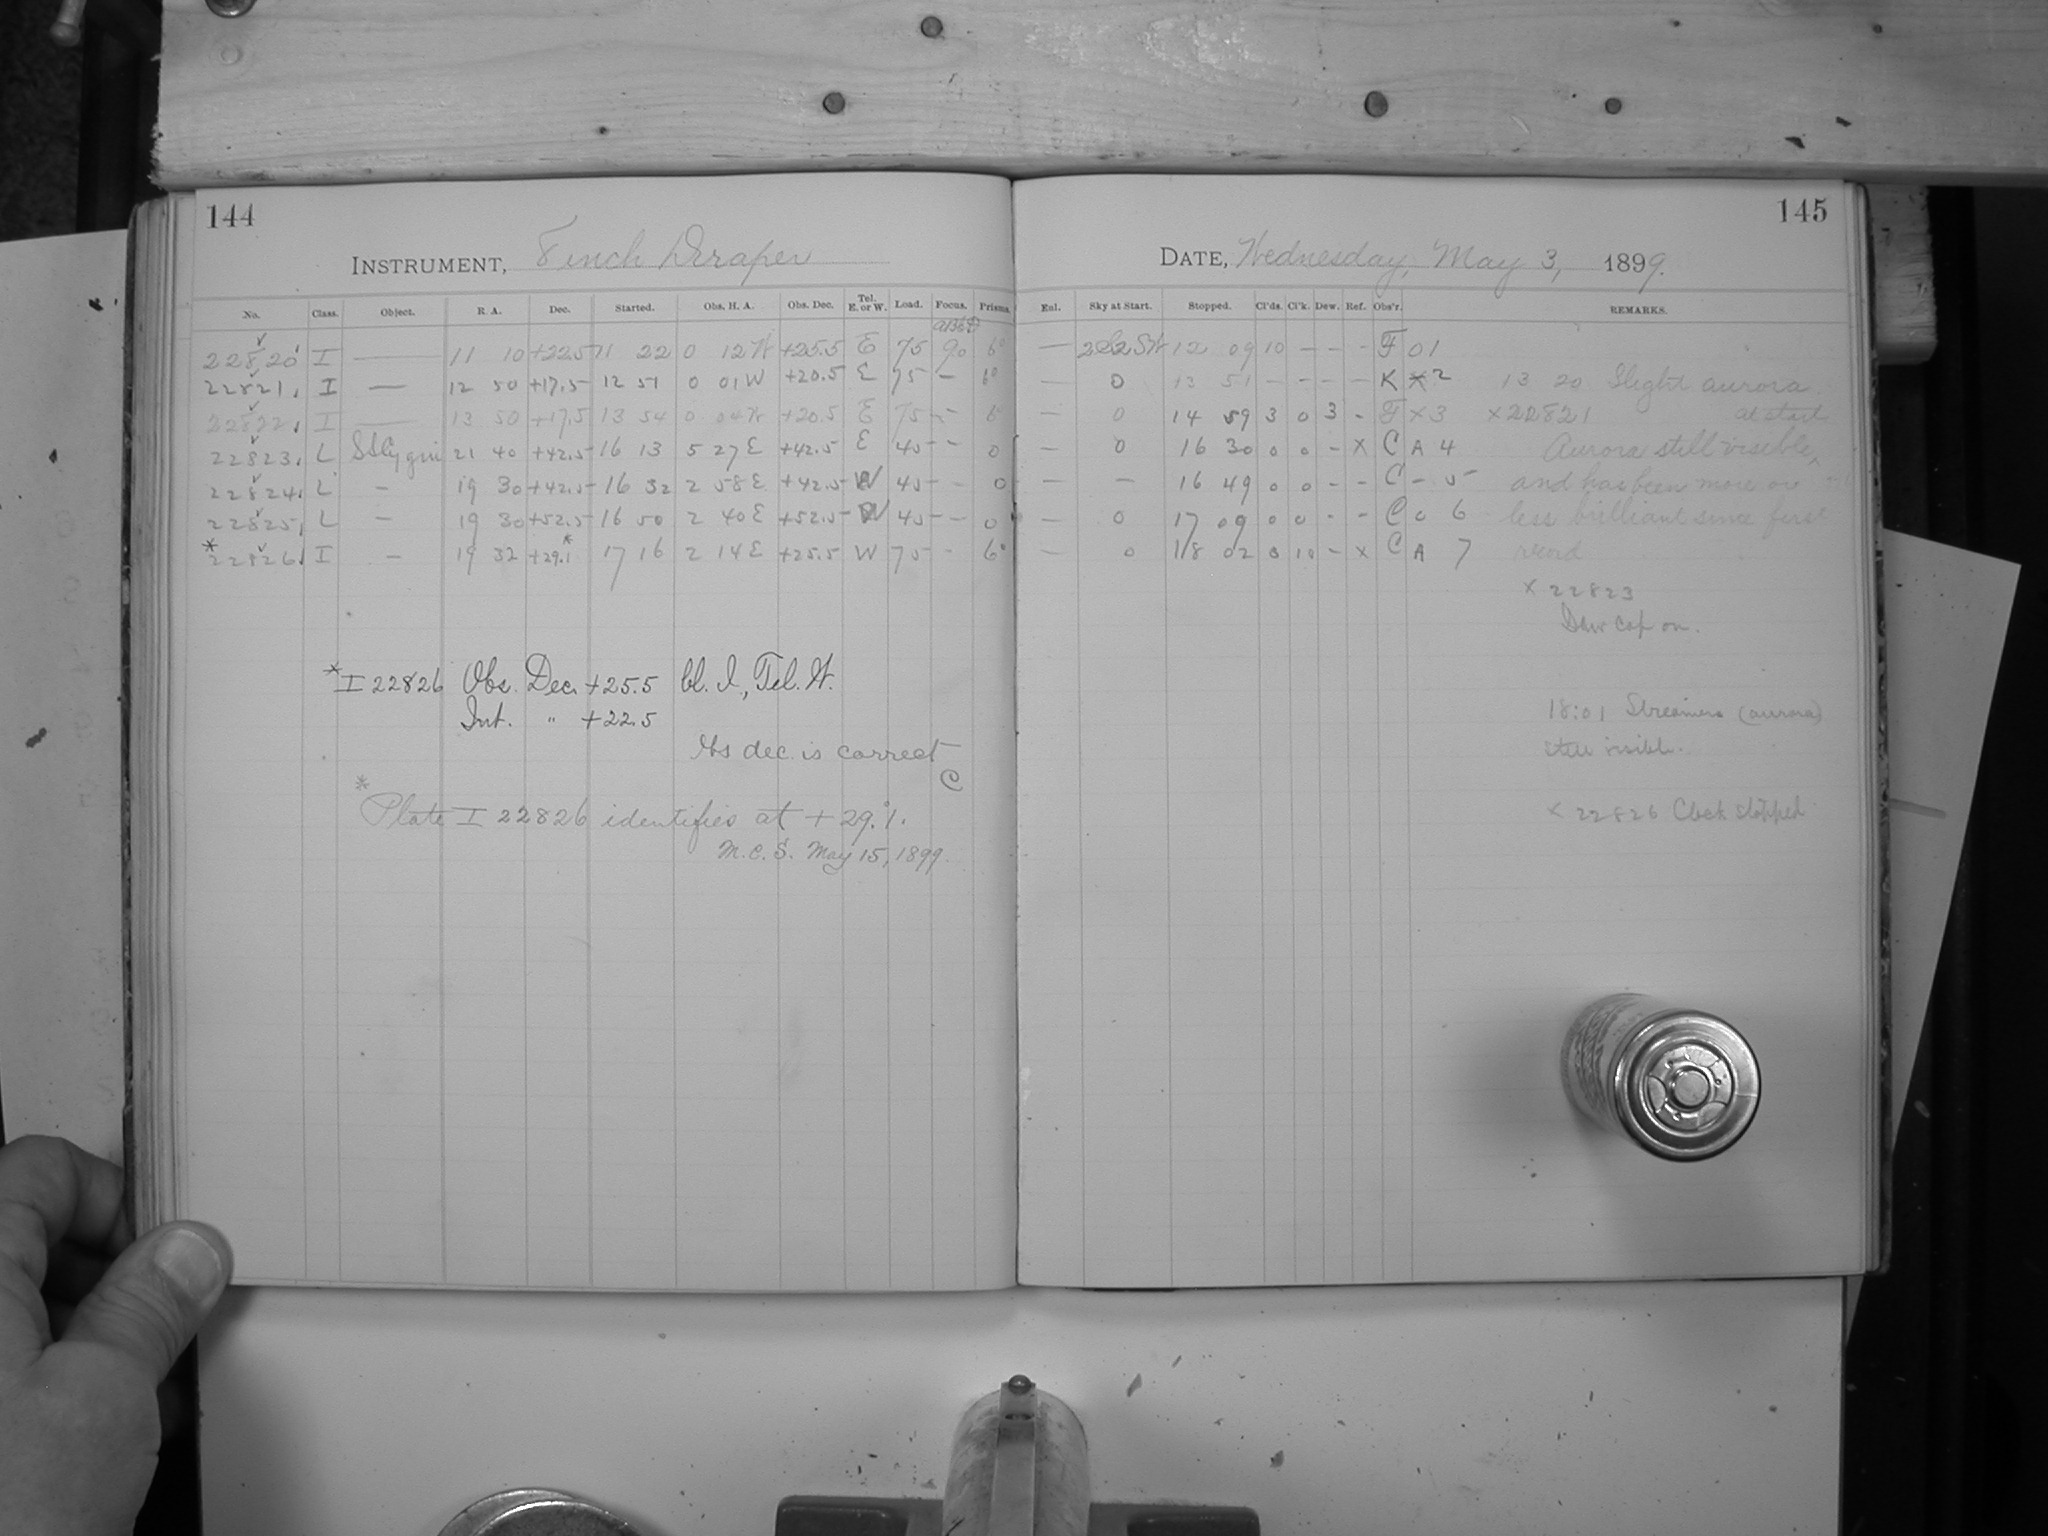 144
INSTRUMENT, 8 inch Draper
No. Class. Object. R. A. Dec. Started. Obs. H. A. Obs. Dec. Tel. E. or W. Load. Focus. Prisms.
22820 I — 11 10 +22.5 11 22 0 12 W +25.5 E 75 90 6°
22821 I — 12 50 +17.5 12 51 0 01 W +20.5 E 75 – 6°
22822 I — 13 50 +17.5 13 54 0 04 W +20.5 E 75 – 6
22823 L SS Cygni 21 40 +42.5 16 13 5 27 E +42.5 E 45 – 0
22824 L – 19 30 +42.5 16 32 2 58 E +42.5 W 45 – 0
22825 L – 19 30 +52.5 16 50 2 40 E +52.5 W 45 – 0
*22826 I – 19 32 +29.1* 17 16 2 14 E +25.5 W 75 – 6°
*I 22826 Obs. Dec. +25.5 Cl. I, Tel. W.
Int. " +22.5
Obs dec. is correct
C
*
Plate I 22826 identifies at +29°.1.
M.C.S. May 15, 1899.
145
DATE, Wednesday, May 3, 1899.
Enl. Sky at Start. Stopped. Cl'ds. Cl'k. Dew. Ref. Obs'r. REMARKS.
— 12 09 10 – – – F 0 1
— 0 13 51 – – – – K X 2 13 20 Slight aurora
— 0 14 59 3 0 3 – F X 3 X 22821 at start
— 0 16 30 0 0 – X C A 4 Aurora still visible,
— – 16 49 0 0 – – C – 5 and has been more or
— 0 17 09 0 0 – – C 0 6 less brilliant since first
— 0 18 02 0 10 – X C A 7 record
X 22823
Dew cap on.
18:01 Streamers (aurora)
still visible.
X 22826 Clock stopped